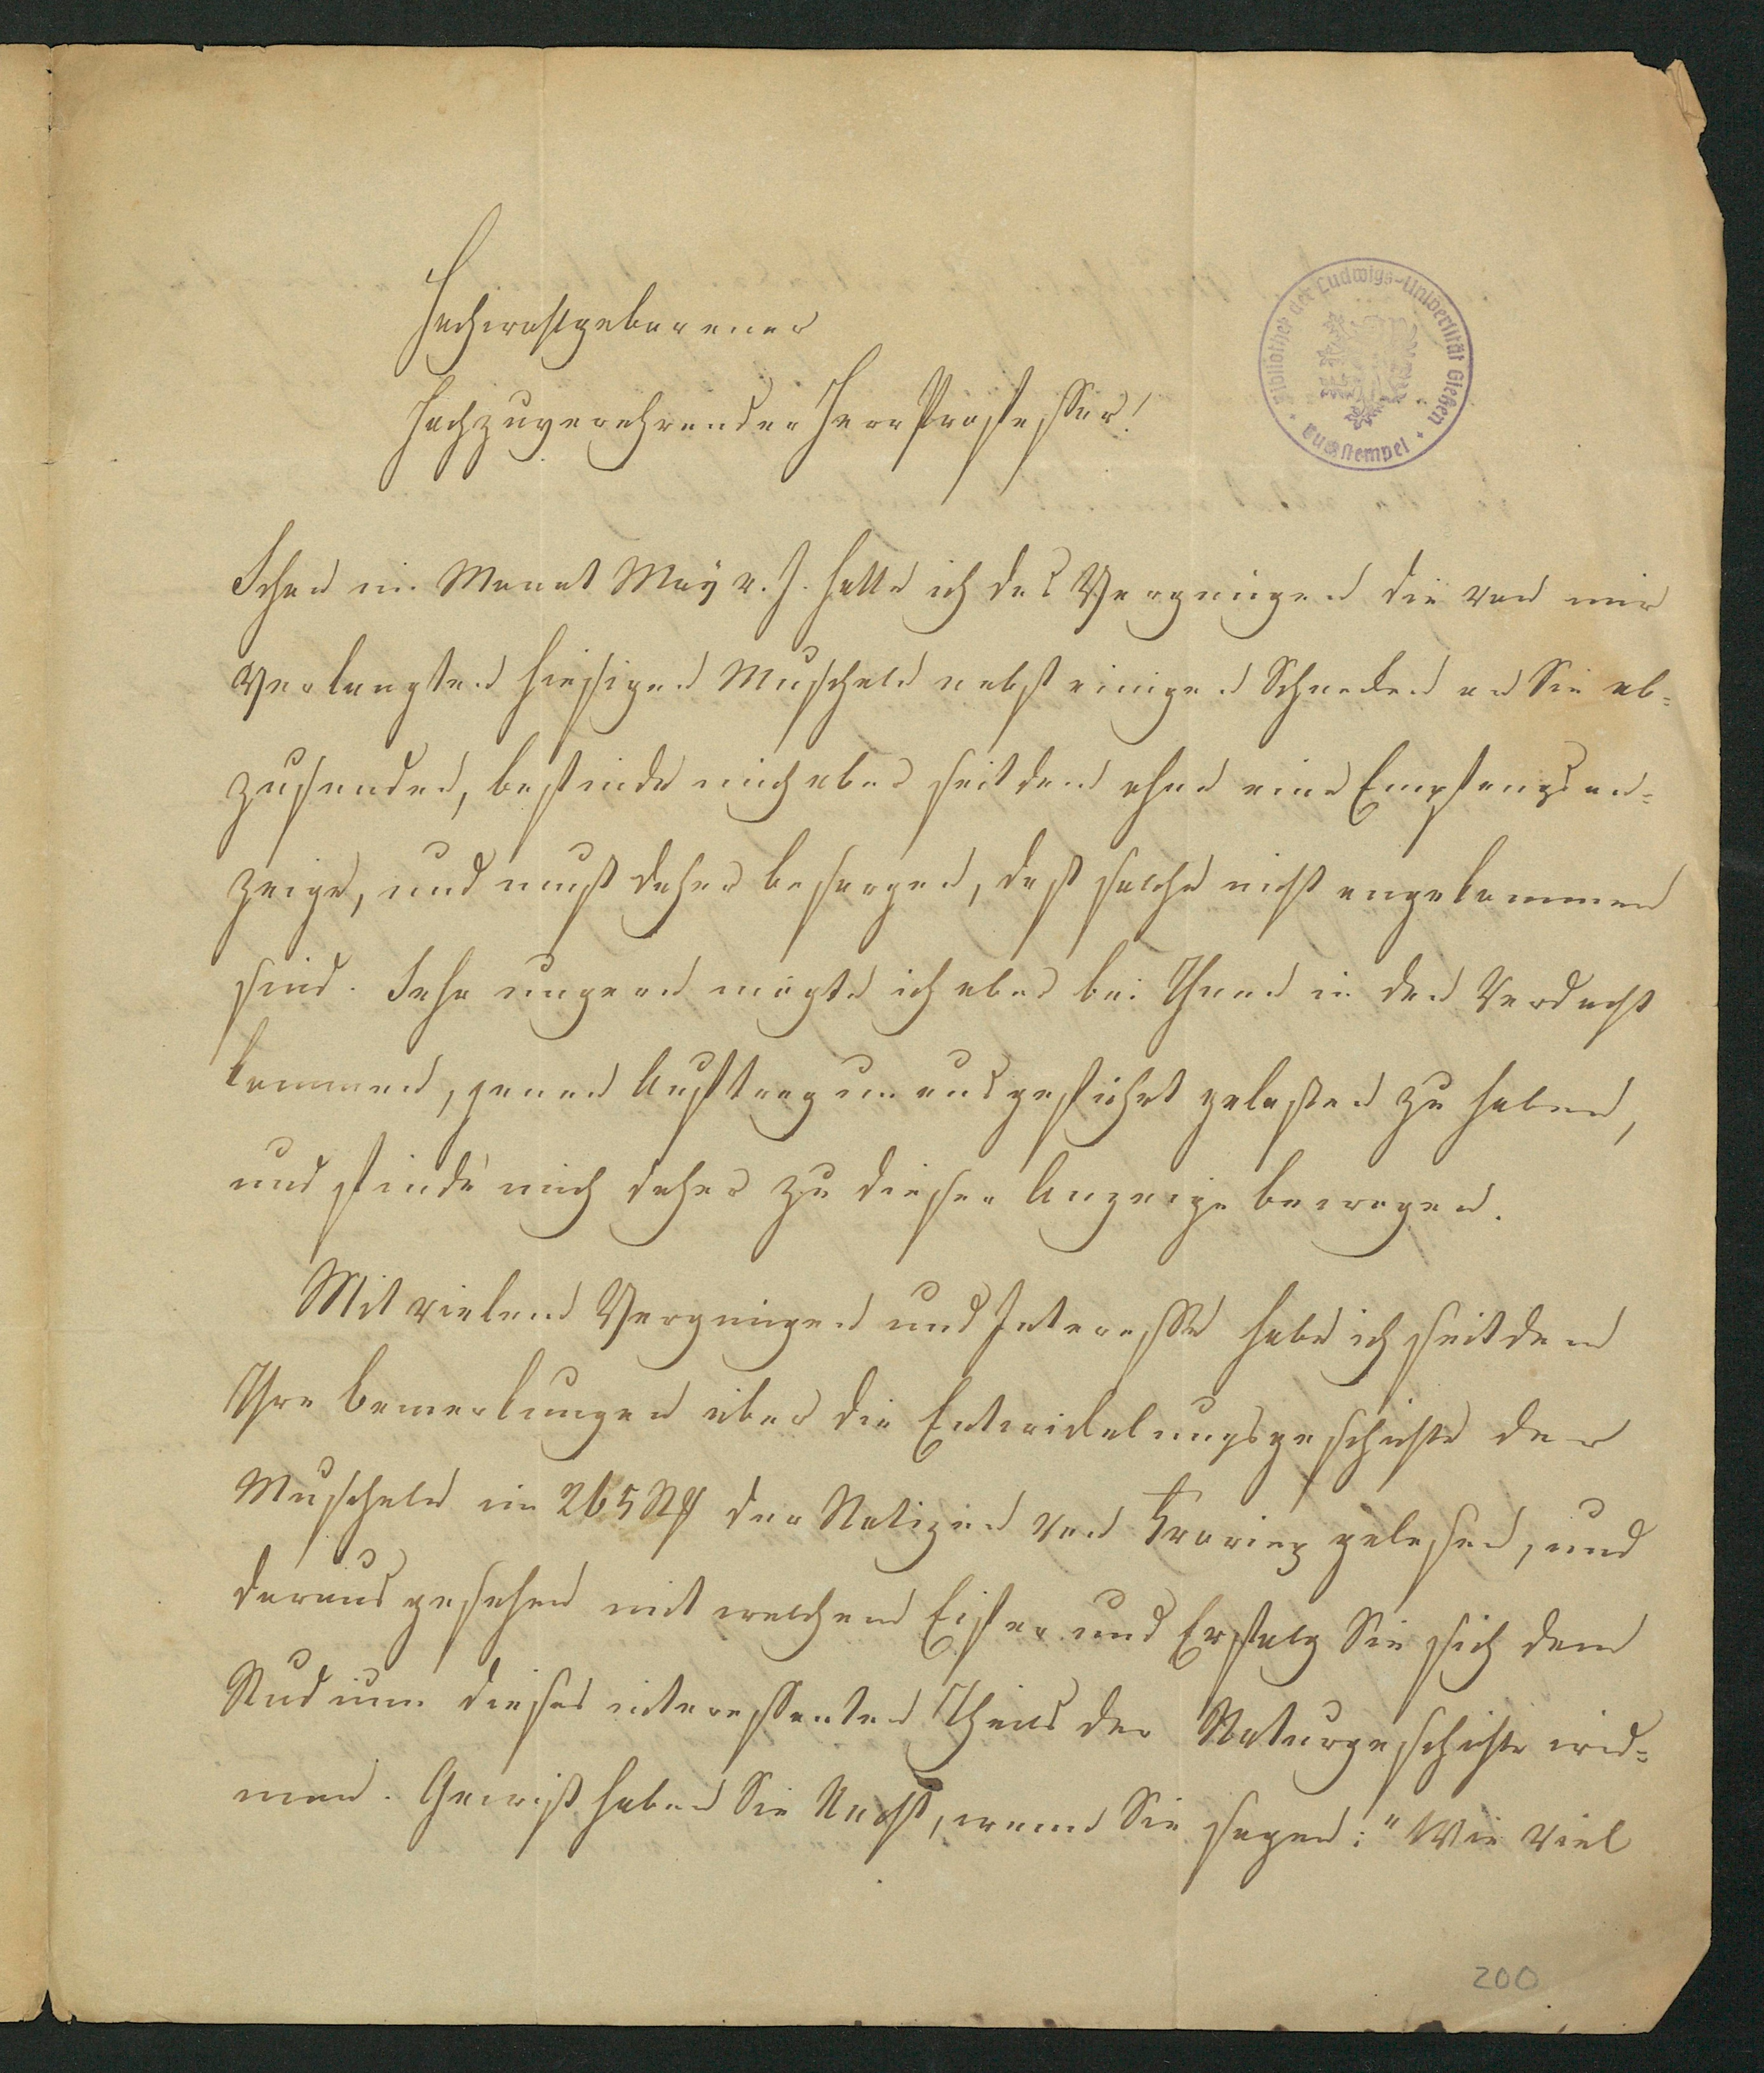 Hochwohlgeborener
Hochzuverehrender Herr Professor!
Bibliothek der Ludwigs-Universität Gießen
Buchstempel
Schon im Monat May v. J. hatte ich das Vergnügen die von mir
verlangten hiesigen Muscheln nebst einigen Schnecken an Sie ab=
zusenden, befinde mich aber seitdem ohne eine Empfangsan=
zeige, und muß daher besorgen, daß solche nicht angekommen
sind. Sehr ungern mögte ich aber bei Ihnen in den Verdacht
kommen, jenen Auftrag unausgeführt gelaßen zu haben,
und finde mich daher zu dieser Anzeige bewogen.
Mit vielem Vergnügen und Interesse habe ich seitdem
Ihre Bemerkungen über die Entwickelungsgeschichte der
Muscheln im 265 St. der Notizen von Froriep gelesen, und
daraus gesehen mit welchem Eifer und Erfolg Sie sich dem
Studium dieses interessanten Theils der Naturgeschichte wid=
men. Gewiß haben Sie Recht, wenn Sie sagen: "Wie viel
200